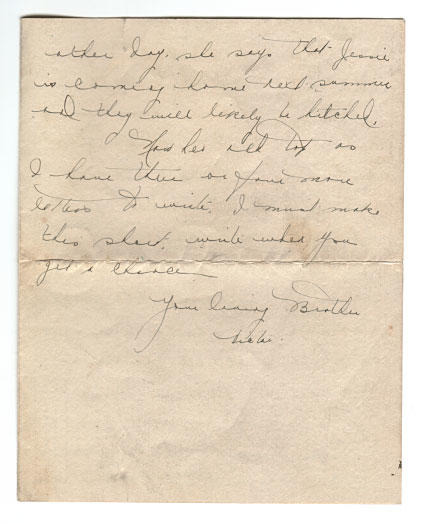 other day. she says that Jessie
is coming home next summer
and they will likely be hitched.
as
I have three or four more
letters to write. I must make
this short. write when you
get a chance
Your loving Brother